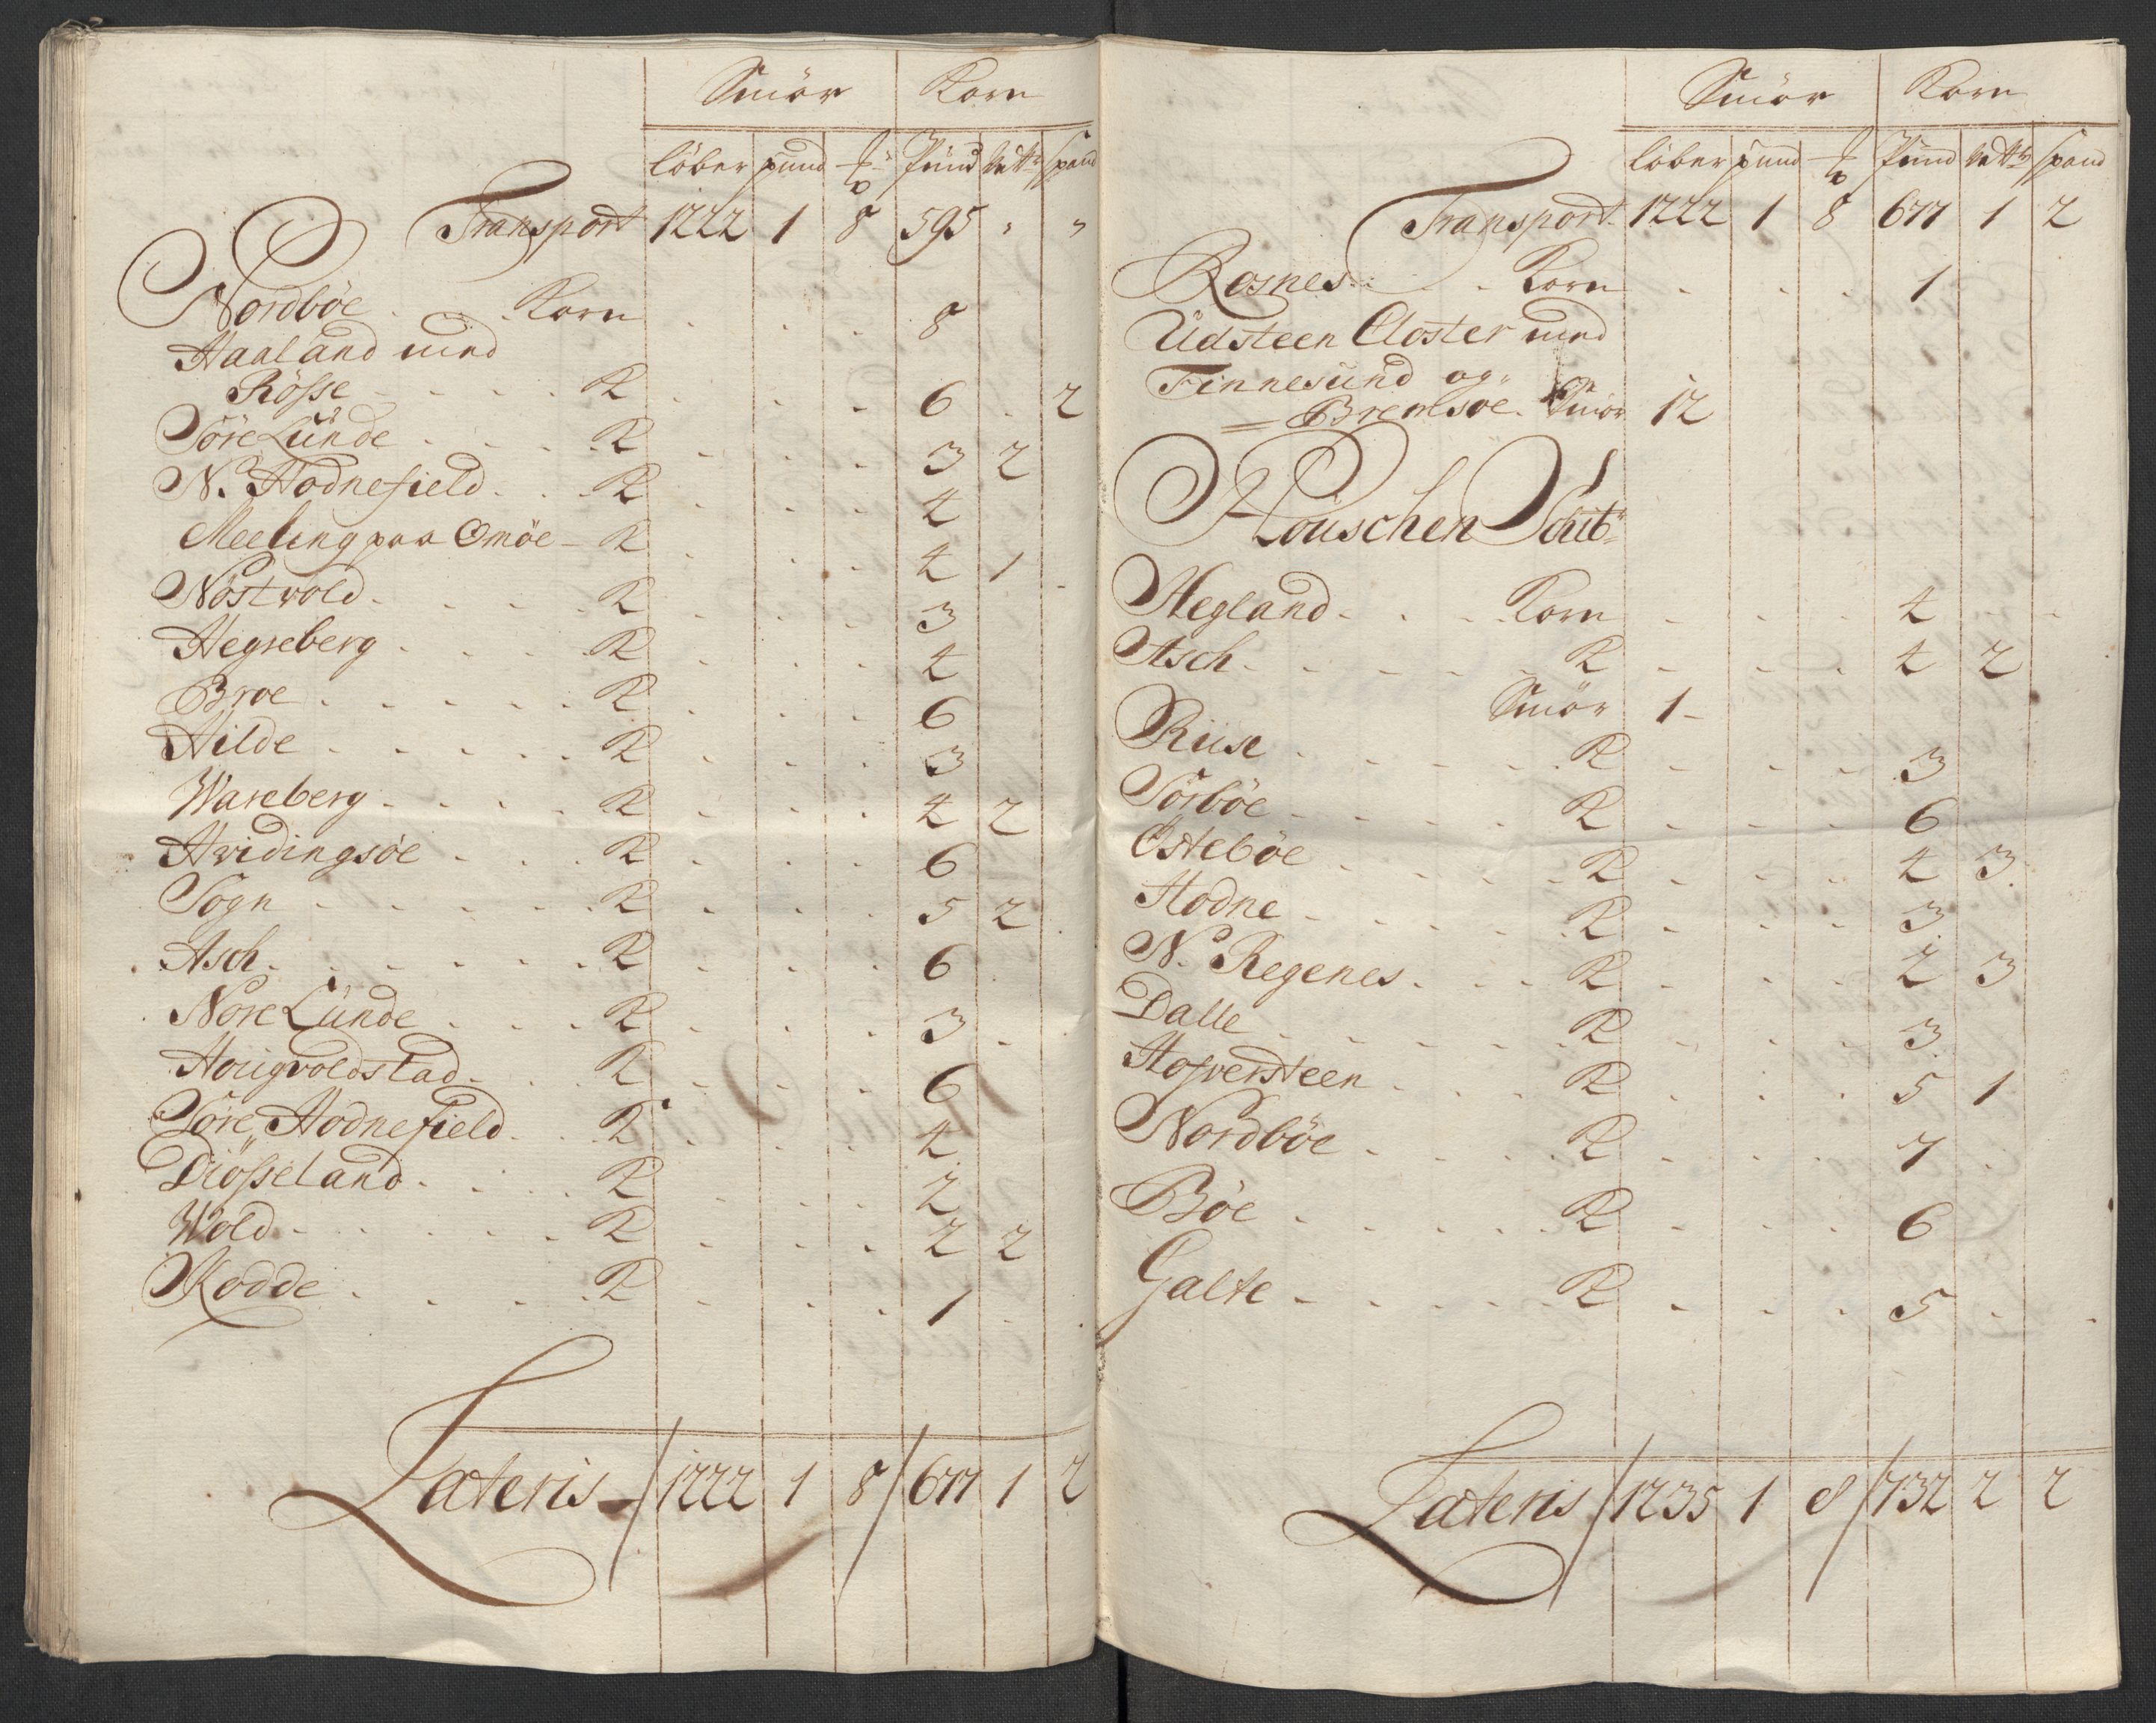 Smör Korn
löber pund ℔ Pund Vett: spand
Transport 1222 1 8 595 " "
Nordböe . . . Korn . . . 8
Haaland med
Rösse . . . K . . . 6 . 2
Söre Lunde . . . K . . . 3 2
N. Hodnefield . . . K . . . 4
Meeling paa Omöe - K . . . 4 1 -
Nöstvold . . . K . . . 3
Hegreberg . . . K . . . 4
Broe . . . K . . . 6
Hilde . . . K . . . 3
Wareberg . . . K . . . 4 2
Hvidingsöe . . . K . . . 6
Sogn . . . K . . . 5 2
Asch . . . K . . . 6
Nöre Lunde . . . K . . . 3
Hougvoldstad . . . K . . . 6
Söre Hodnefield . . . K . . . 4
Diösseland . . . K . . . 2
Wold . . . K . . . 2 2
Kodde . . . K . . . 1
Lateris 1222 1 8 677 1 2
Smör Korn
löber pund ℔ Pund Vett: spand
Transport 1222 1 8 677 1 2
Rosnes . . . Korn . . . 1
Udsteen Closter med
Finnesund og
Bremsöe . Smör 12
Houschen Schib:
Hegland . . . Korn . . . 4
Asch . . . K . . . 4 2
Smör 1 -
Riise . . . K . . . 3
Sörböe . . . K . . . 6
Osteböe . . . K . . . 4 3
Hodne . . . K . . . 3
N. Regenes . . . K . . . 2 3
Dalle . . . K . . . 3
Hofversteen . . . K . . . 5 1
Nordböe . . . K . . . 7
Böe . . . K . . . 6
Galte . . . K . . . 5
Lateris 1235 1 8 732 2 2